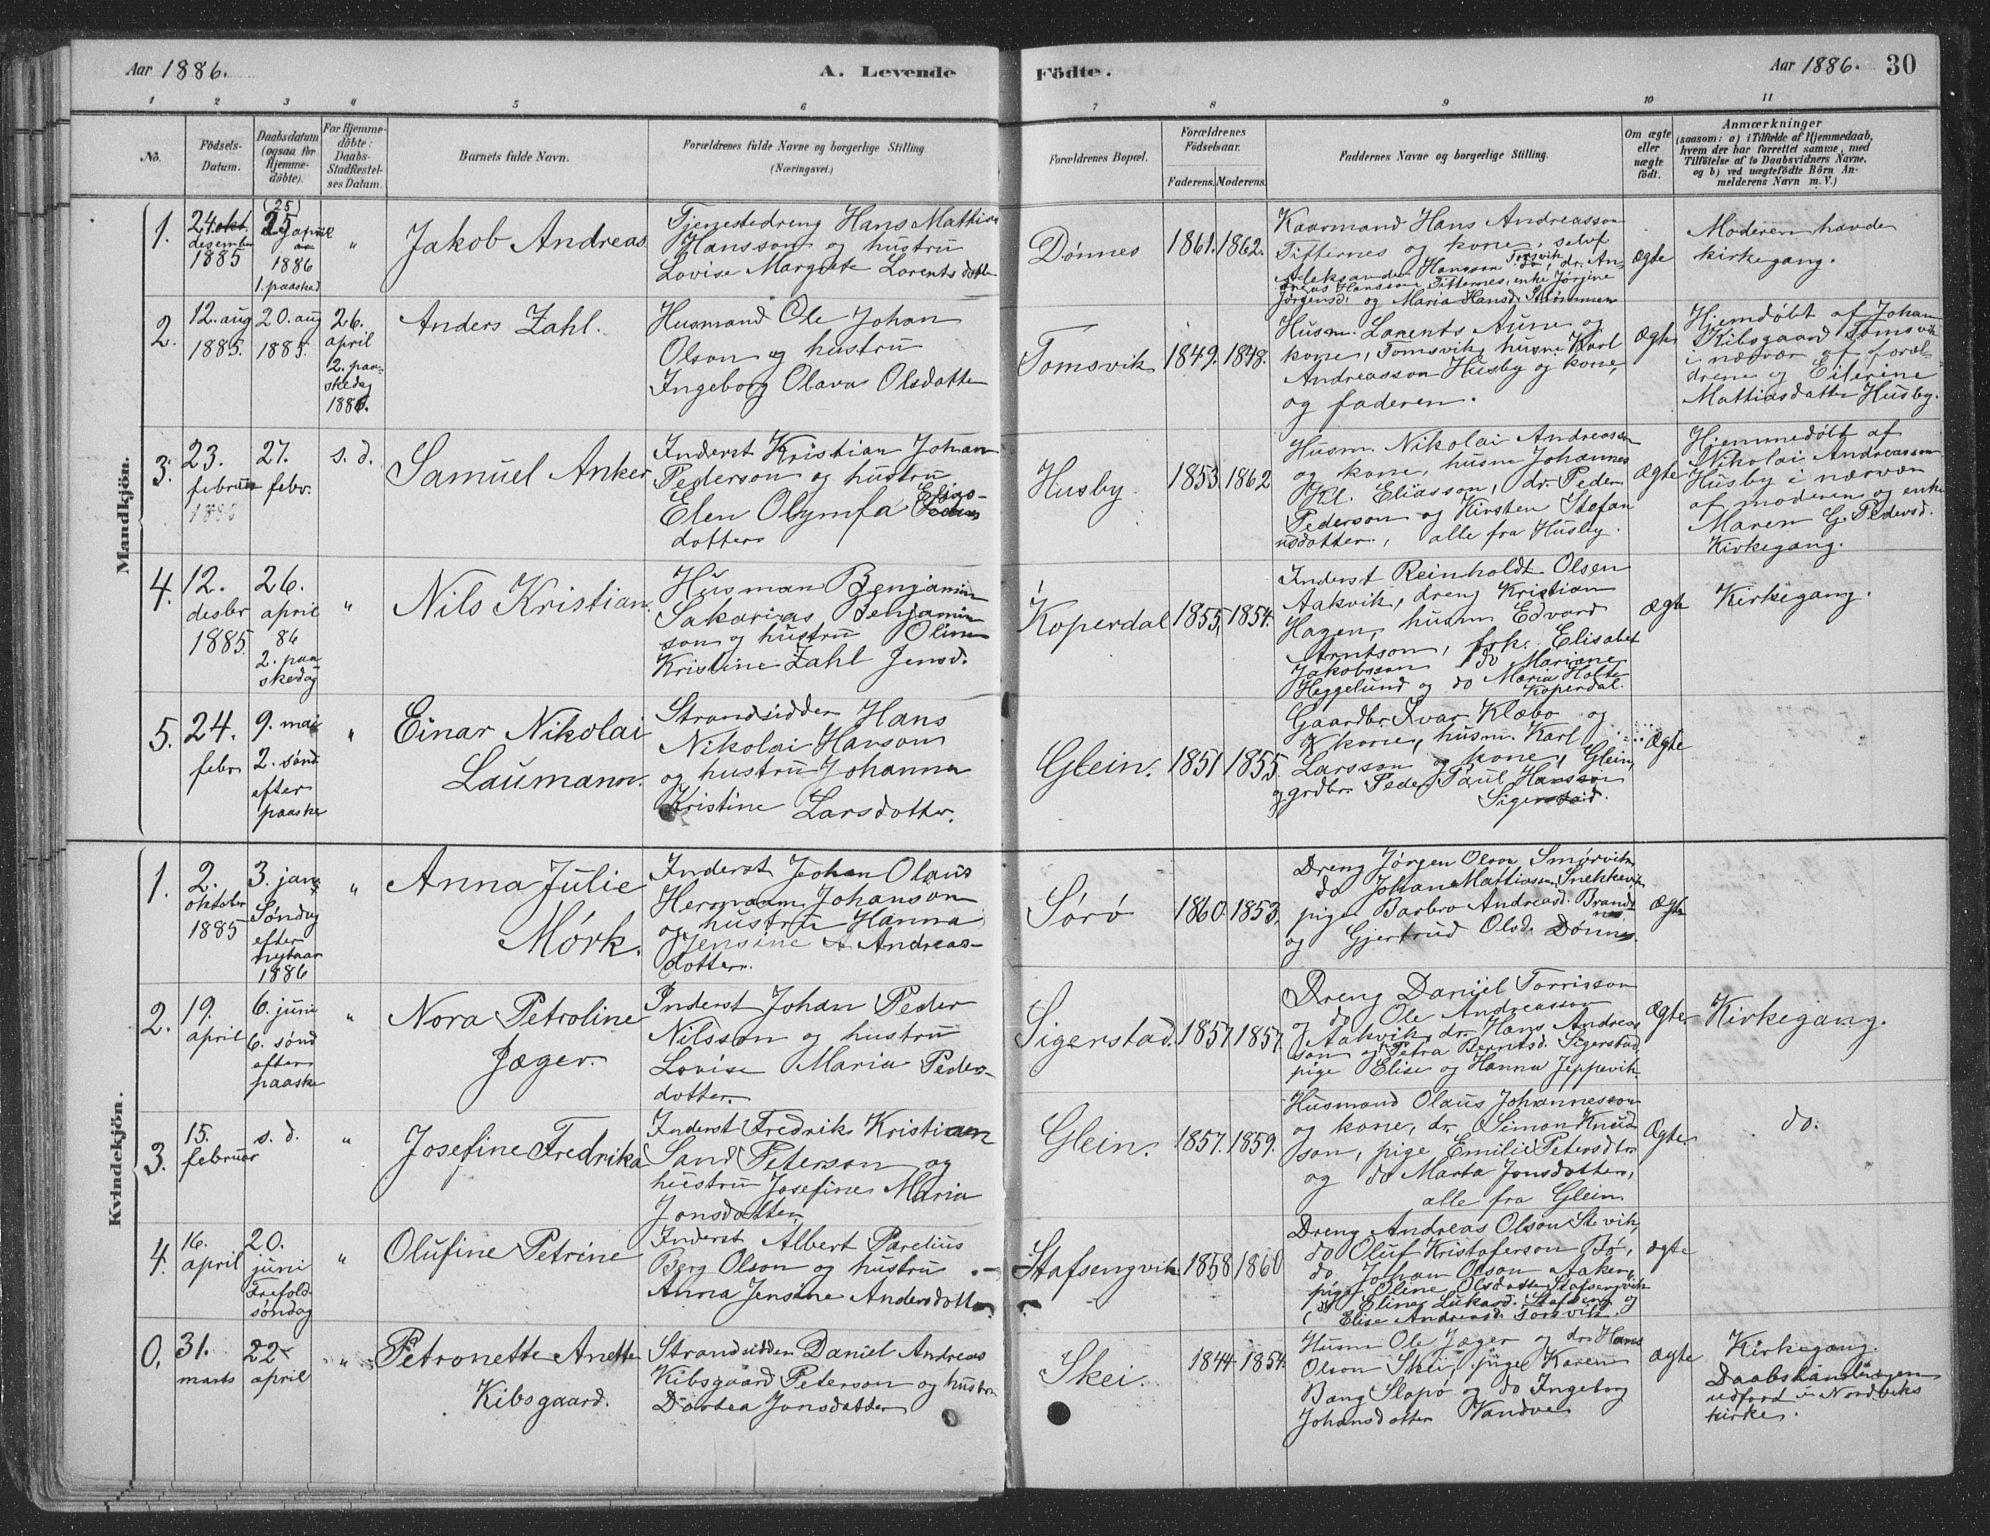 Aar 1886.
A. Levende
Födte.
Aar 1886. 30
1 2 3 4 5 6 7 8 9 10 11
No.
Födsels-
Datum.
Daabsdatum
(ogsaa for
Hjemme-
döbte).
For Hjemme-
döbte:
Daabs-
Stadfæstel-
ses Datum.
Barnets fulde Navn.
Forældrenes fulde Navne og borgerlige Stilling
(Næringsvei.)
Forældrenes Bopæl.
Forældrenes
Födselsaar.
Faderens. Moderens.
Faddernes Navne og borgerlige Stilling.
Om ægte
eller
uægte
födt.
Anmærkninger
(saasom: a) i Tilfælde af Hjemmedaab,
hvem der har forrettet samme, med
Tilföielse af to Daabsvidners Navne,
og b) ved uægtefödte Börn An-
melderens Navn m. V.)
Mandkjön.
1.
24. okt.
desember
1885
(25)
25 april
1886
1. paasked
"
Jakob Andreas
Tjenestedreng Hans Mattias
Hansson og hustru
Lovise Margrete Lorentsdatter
Dønnes
1861. 1862.
Kaarmand Hans Andreasson
Titternes og kone, selvf
Aleksander Hansson Tomsvik do, dr. An-
dreas Hansson, Titternes, enke Jørgine
Jørgensd. og Maria Hansd. Strømmen
Ægte
Moderen havde
kirkegang.
2.
12. aug
1885.
20. aug
1885.
26.
april
2. paa-
skedag
1886.
Anders Zahl.
Husmand Ole Johan
Olson og hustru
Ingeborg Olava Olsdatter
Tomsvik
1849. 1848.
Husm. Lorents Aune og
kone, Tomsvik, husm Karl
Andreasson Husby og kone,
og faderen.
Ægte
Hjemdøbt af Johan
Kibsgaard Tomsvik
i nærvær af foræl-
drene og Eilerine
Mattiasdatter Husby.
3.
23.
februar
27.
febr.
s. d.
Samuel Anker
Inderst Kristian Johan
Pederson og hustru
Elen Olymfa Elias-
dotter
Husby
1853. 1862
Husm. Nikolai Andreasson
og kone, husm Johannes
Kl. Eliasson, dr. Peder
Pederson og Kirsten Stefan
usdotter, alle fra Husby.
Ægte
Hjemmedøbt af
Nikolai Andreasson
Husby i nærvær
af moderen og enke
Maren G. Pedersd.
Kirkegang.
4.
12.
desbr
1885.
26.
april
86
2. paa
skedag
"
Nils Kristian.
Husman Benjamin
Sakarias Benjamin
son og hustru Oline
Kristine Zahl Jensd.
Koperdal
1855. 1854.
Inderst Reinholdt Olsen
Aakvik, dreng Kristian
Hagen, husm Edvard
Arntson, frk. Elisabet
Jakobsson do Mariane
Heggelund og do Maria Holte
Koperdal.
Ægte
Kirkegang.
5.
24.
febr
9. mai
2. sønd
efter
paaske
"
Einar Nikolai
Laumann.
Strandsidder Hans
Nikolai Hanson
og hustru Johanna
Kristine Larsdotter.
Glein.
1851 1855
Gaardbr Ivar Klæbo og
kone, husm. Karl
Larsson og kone, Glein,
og grdbr Peder Paul Hansson
Ægte
Kvindekjön.
1.
2.
oktober
1885
3. jan
Søndag
efter
nytaar
1886
"
Anna Julie
Mørk.
Inderst Johan Olaus
Hermann Johanson
og hustru Hanna
Jensine Andreas-
dotter.
Sørø
1860. 1853.
Dreng Jørgen Olson Smørvik,
do Johan Mattiasson Snekkevik
pige Barbro Andreasd. Brand-
nes
og Gjertrud Olsd. Dønnes.
Ægte
2.
19.
april
6. juni
6. sønd
efter
paaske
"
Nora Petroline
Jæger.
Inderst Johan Peder
Nilsson og hustru
Lovise Maria Peders-
dotter.
Sigerstad.
1857 1857.
Dreng Daniel Torrisson
og do Ole Andreasson
Aakvik, dr. Hans Andreas
son og Petra Berntsd. Sigerstad,
pige Elise og Hanna Jeppevik.
Ægte
Kirkegang.
3.
15.
februar
s. d.
"
Josefine Fredrika
Inderst Fredrik Kristian
Sand Peterson og
hustru Josefine Maria
Jonsdotter.
Glein.
1857. 1859.
Husmand Olaus Johannesson
og kone, dr. Simon Knud
son, pige Emilie Petersdtr
og do Marta Jonsdotter,
alle fra Glein.
Ægte
do.
4.
16.
april
20.
juni
Trefold-
søndag
"
Olufine Petrine
Inderst Albert Parelius
Berg Olson og hustru
Anna Jensine Andersdotter
Stafsengvik
1858 1860
Dreng Andreas Olson Stevik,
do Oluf Kristoferson Bø,
do Johan Olson Aaker,
pige Oline Olsdatter Stafsengvik
do Eline Lukasd. Stafseng og
Elise Andreasd. Torsvik.
ægte
0.
31.
marts
22
april
"
Petronette Anette
Kibsgaard.
Strandsidder Daniel Andreas
Kibsgaard Peterson og hustru
Dortea Jonsdatter
Skei.
1844. 1854.
Husm Ole Jæger og dr. Hans
Olson Skei, pige Karen
Bang Slapø og do Ingeborg
Johansdotter Vandve
ægte
Kirkegang.
Daabshandlingen
udførd i Nordviks
kirke.